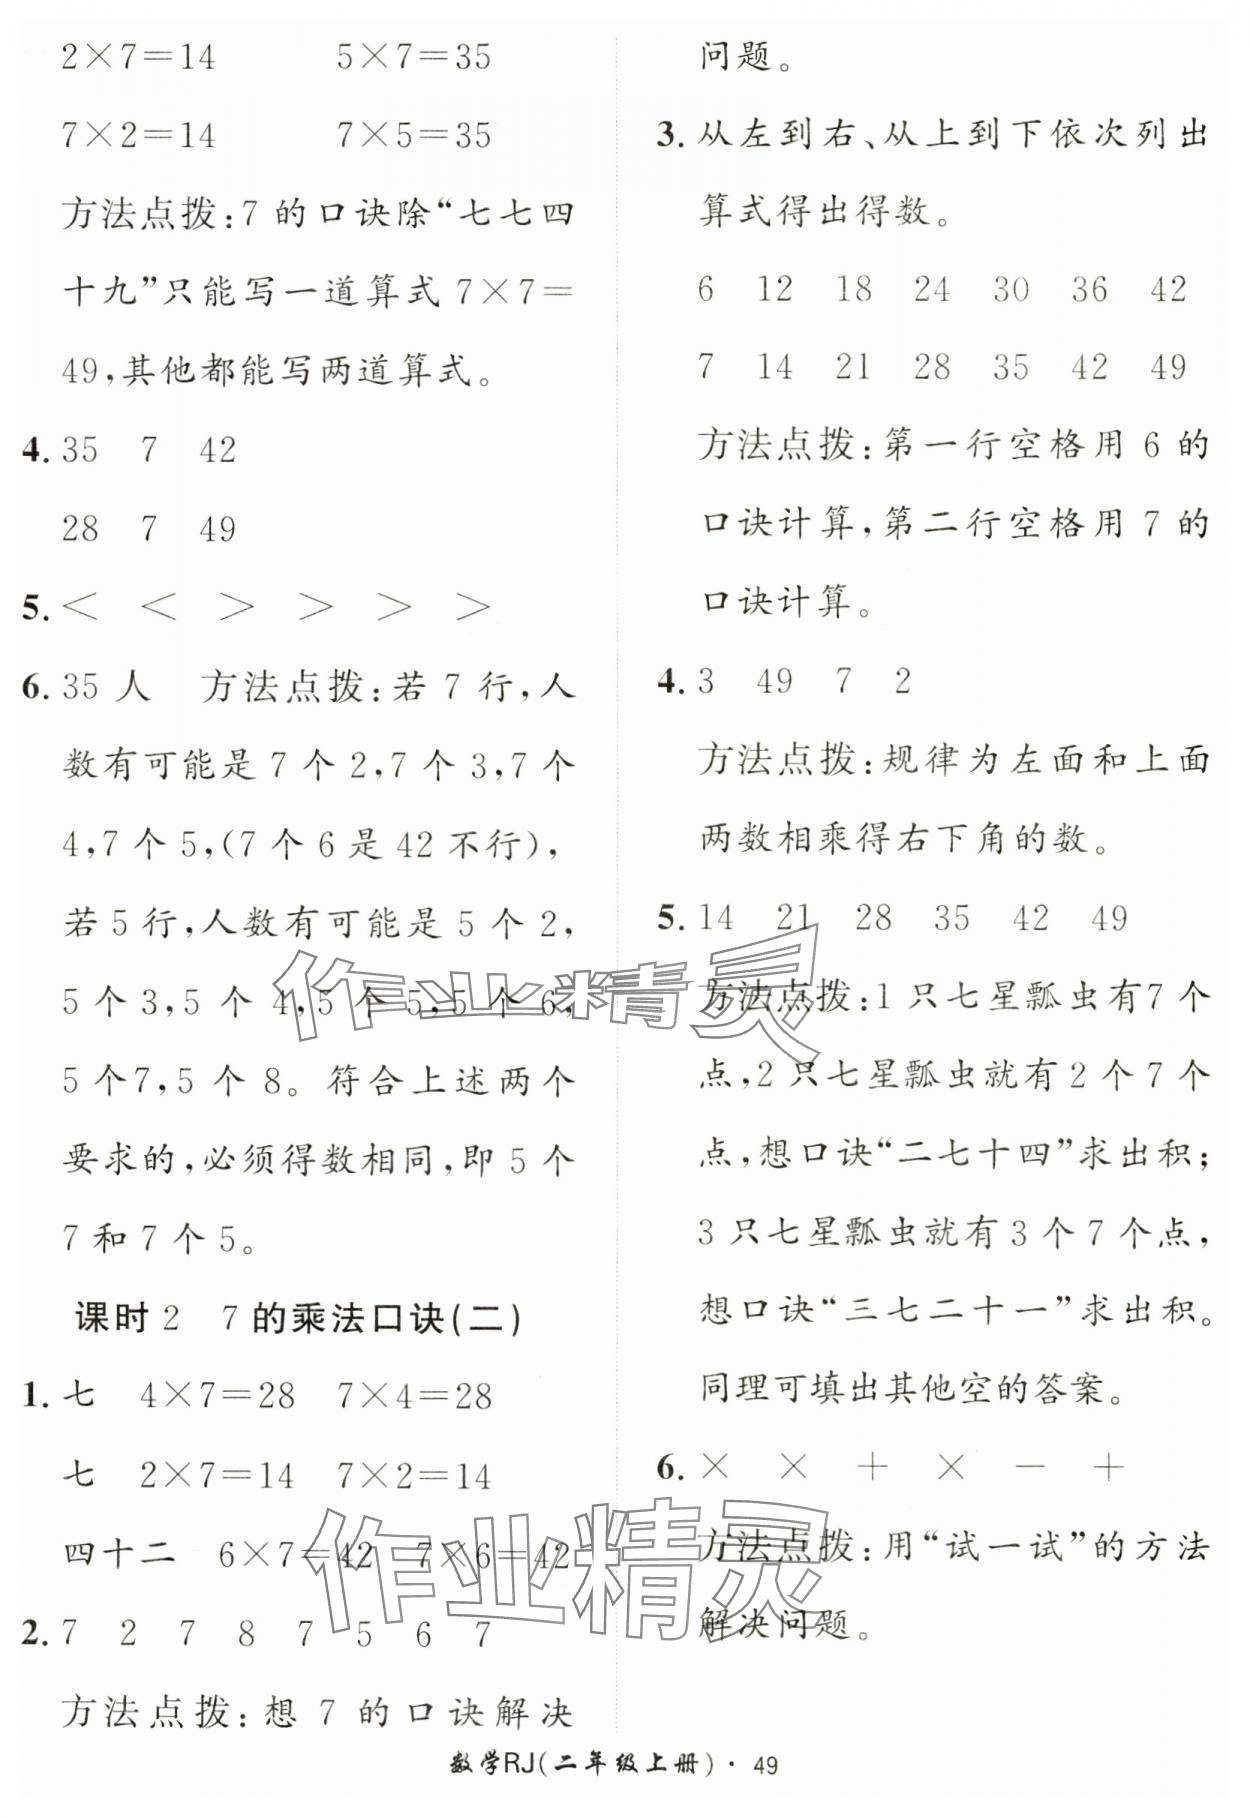 2×7=14　5×7=35
7×2=14　7×5=35
方法点拨:7的口诀除“七七四
十九”只能写一道算式7×7=
49,其他都能写两道算式。
4. 35　7　42
28　7　49
5. <　<　>　>　>　>
6. 35人　方法点拨:若7行,人
数有可能是7个2,7个3,7个
4,7个5,(7个6是42不行),
若5行,人数有可能是5个2,
5个3,5个4,5个5,5个6,
5个7,5个8。符合上述两个
要求的,必须得数相同,即5个
7和7个5。
课时2　7的乘法口诀(二)
1. 七　4×7=28　7×4=28
七　2×7=14　7×2=14
四十二　6×7=42　7×6=42
2. 7　2　7　8　7　5　6　7
方法点拨:想7的口诀解决
问题。
3. 从左到右、从上到下依次列出
算式得出得数。
6　12　18　24　30　36　42
7　14　21　28　35　42　49
方法点拨:第一行空格用6的
口诀计算,第二行空格用7的
口诀计算。
4. 3　49　7　2
方法点拨:规律为左面和上面
两数相乘得右下角的数。
5. 14　21　28　35　42　49
方法点拨:1只七星瓢虫有7个
点,2只七星瓢虫就有2个7个
点,想口诀“二七十四”求出积;
3只七星瓢虫就有3个7个点,
想口诀“三七二十一”求出积。
同理可填出其他空的答案。
6. ×　×　+　×　-　+
方法点拨:用“试一试”的方法
解决问题。
作业精灵
作业精灵
数学RJ(二年级上册)·49